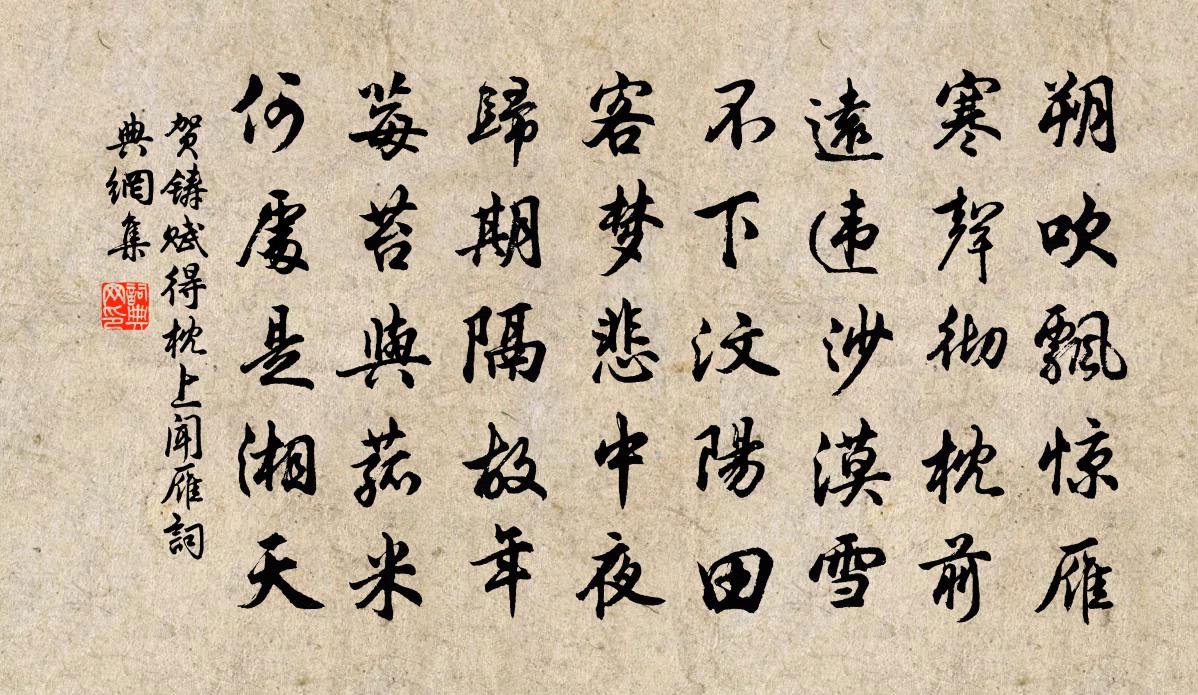 朔吹飄惊雁
寒聲彻枕前
遠违沙漠雪
不下汶陽田
客梦悲中夜
歸期隔故年
莓苔與菰米
何處是湘天
贺鑄赋得枕上闻雁詞
典網集
詞典网印